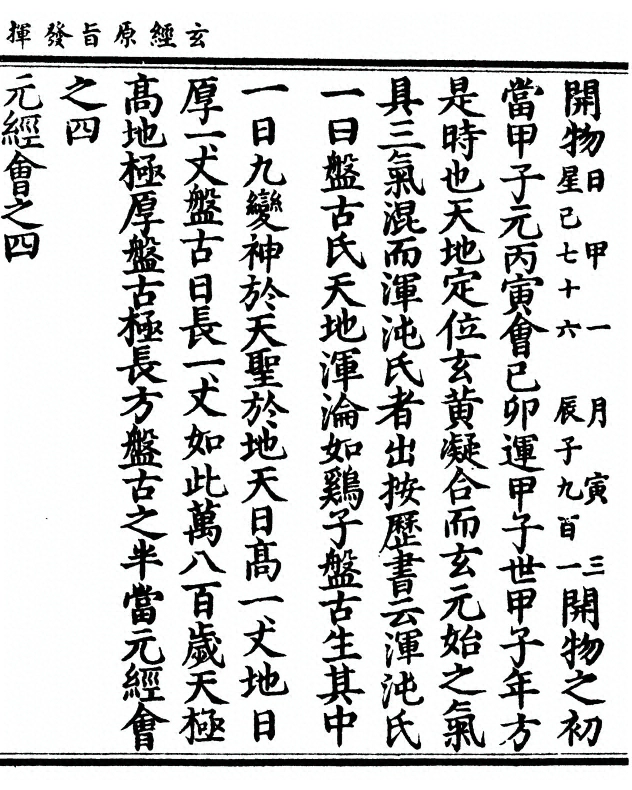 玄經原旨發揮
開物日甲一月寅三星己七十六辰子九百一開物之初
當甲子元丙寅會己卯運甲子世甲子年方
是時也天地定位玄黃凝合而玄元始之氣
具三氣混而渾沌氏者出按歷書云渾沌氏
一曰盤古氏天地渾淪如鷄子盤古生其中
一日九變神於天聖於地天日髙一丈地日
厚一丈盤古日長一丈如此萬八百歲天極
髙地極厚盤古極長方盤古之半當元經會
之四
元經會之四